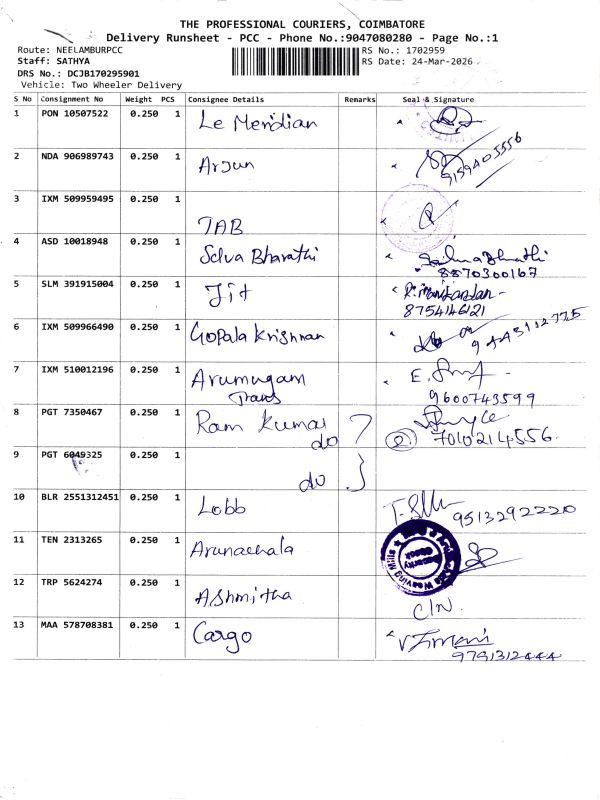 THE PROFESSIONAL COURIERS, COIMBATORE
Delivery Runsheet - PCC - Phone No.:9047080280 - Page No.:1
Route: NEELAMBURPCC
Staff: SATHYA
DRS No.: DCJB170295901
Vehicle: Two Wheeler Delivery
RS No.: 1702959
RS Date: 24-Mar-2026
S No Consignment No Weight PCS Consignee Details Remarks Seal & Signature
1 PON 10507522 0.250 1 Le Meridian
2 NDA 906989743 0.250 1 Arjun 9159405556
3 IXM 509959495 0.250 1 TAB
4 ASD 10018948 0.250 1 Selva Bharathi
8870300167
5 SLM 391915004 0.250 1 Jit R. Manikandan
8754146121
6 IXM 509966490 0.250 1 Gopala Krishnan 9443112775
7 IXM 510012196 0.250 1 Arumugam E.
Trans 9600743599
8 PGT 7350467 0.250 1 Ram Kumar
do 7010214556
9 PGT 6049325 0.250 1
do
10 BLR 2551312451 0.250 1 Lobb 9513292220
11 TEN 2313265 0.250 1 Arunachala
12 TRP 5624274 0.250 1 AShmitha C/N.
13 MAA 578708381 0.250 1 Cargo V Imani
9791312444